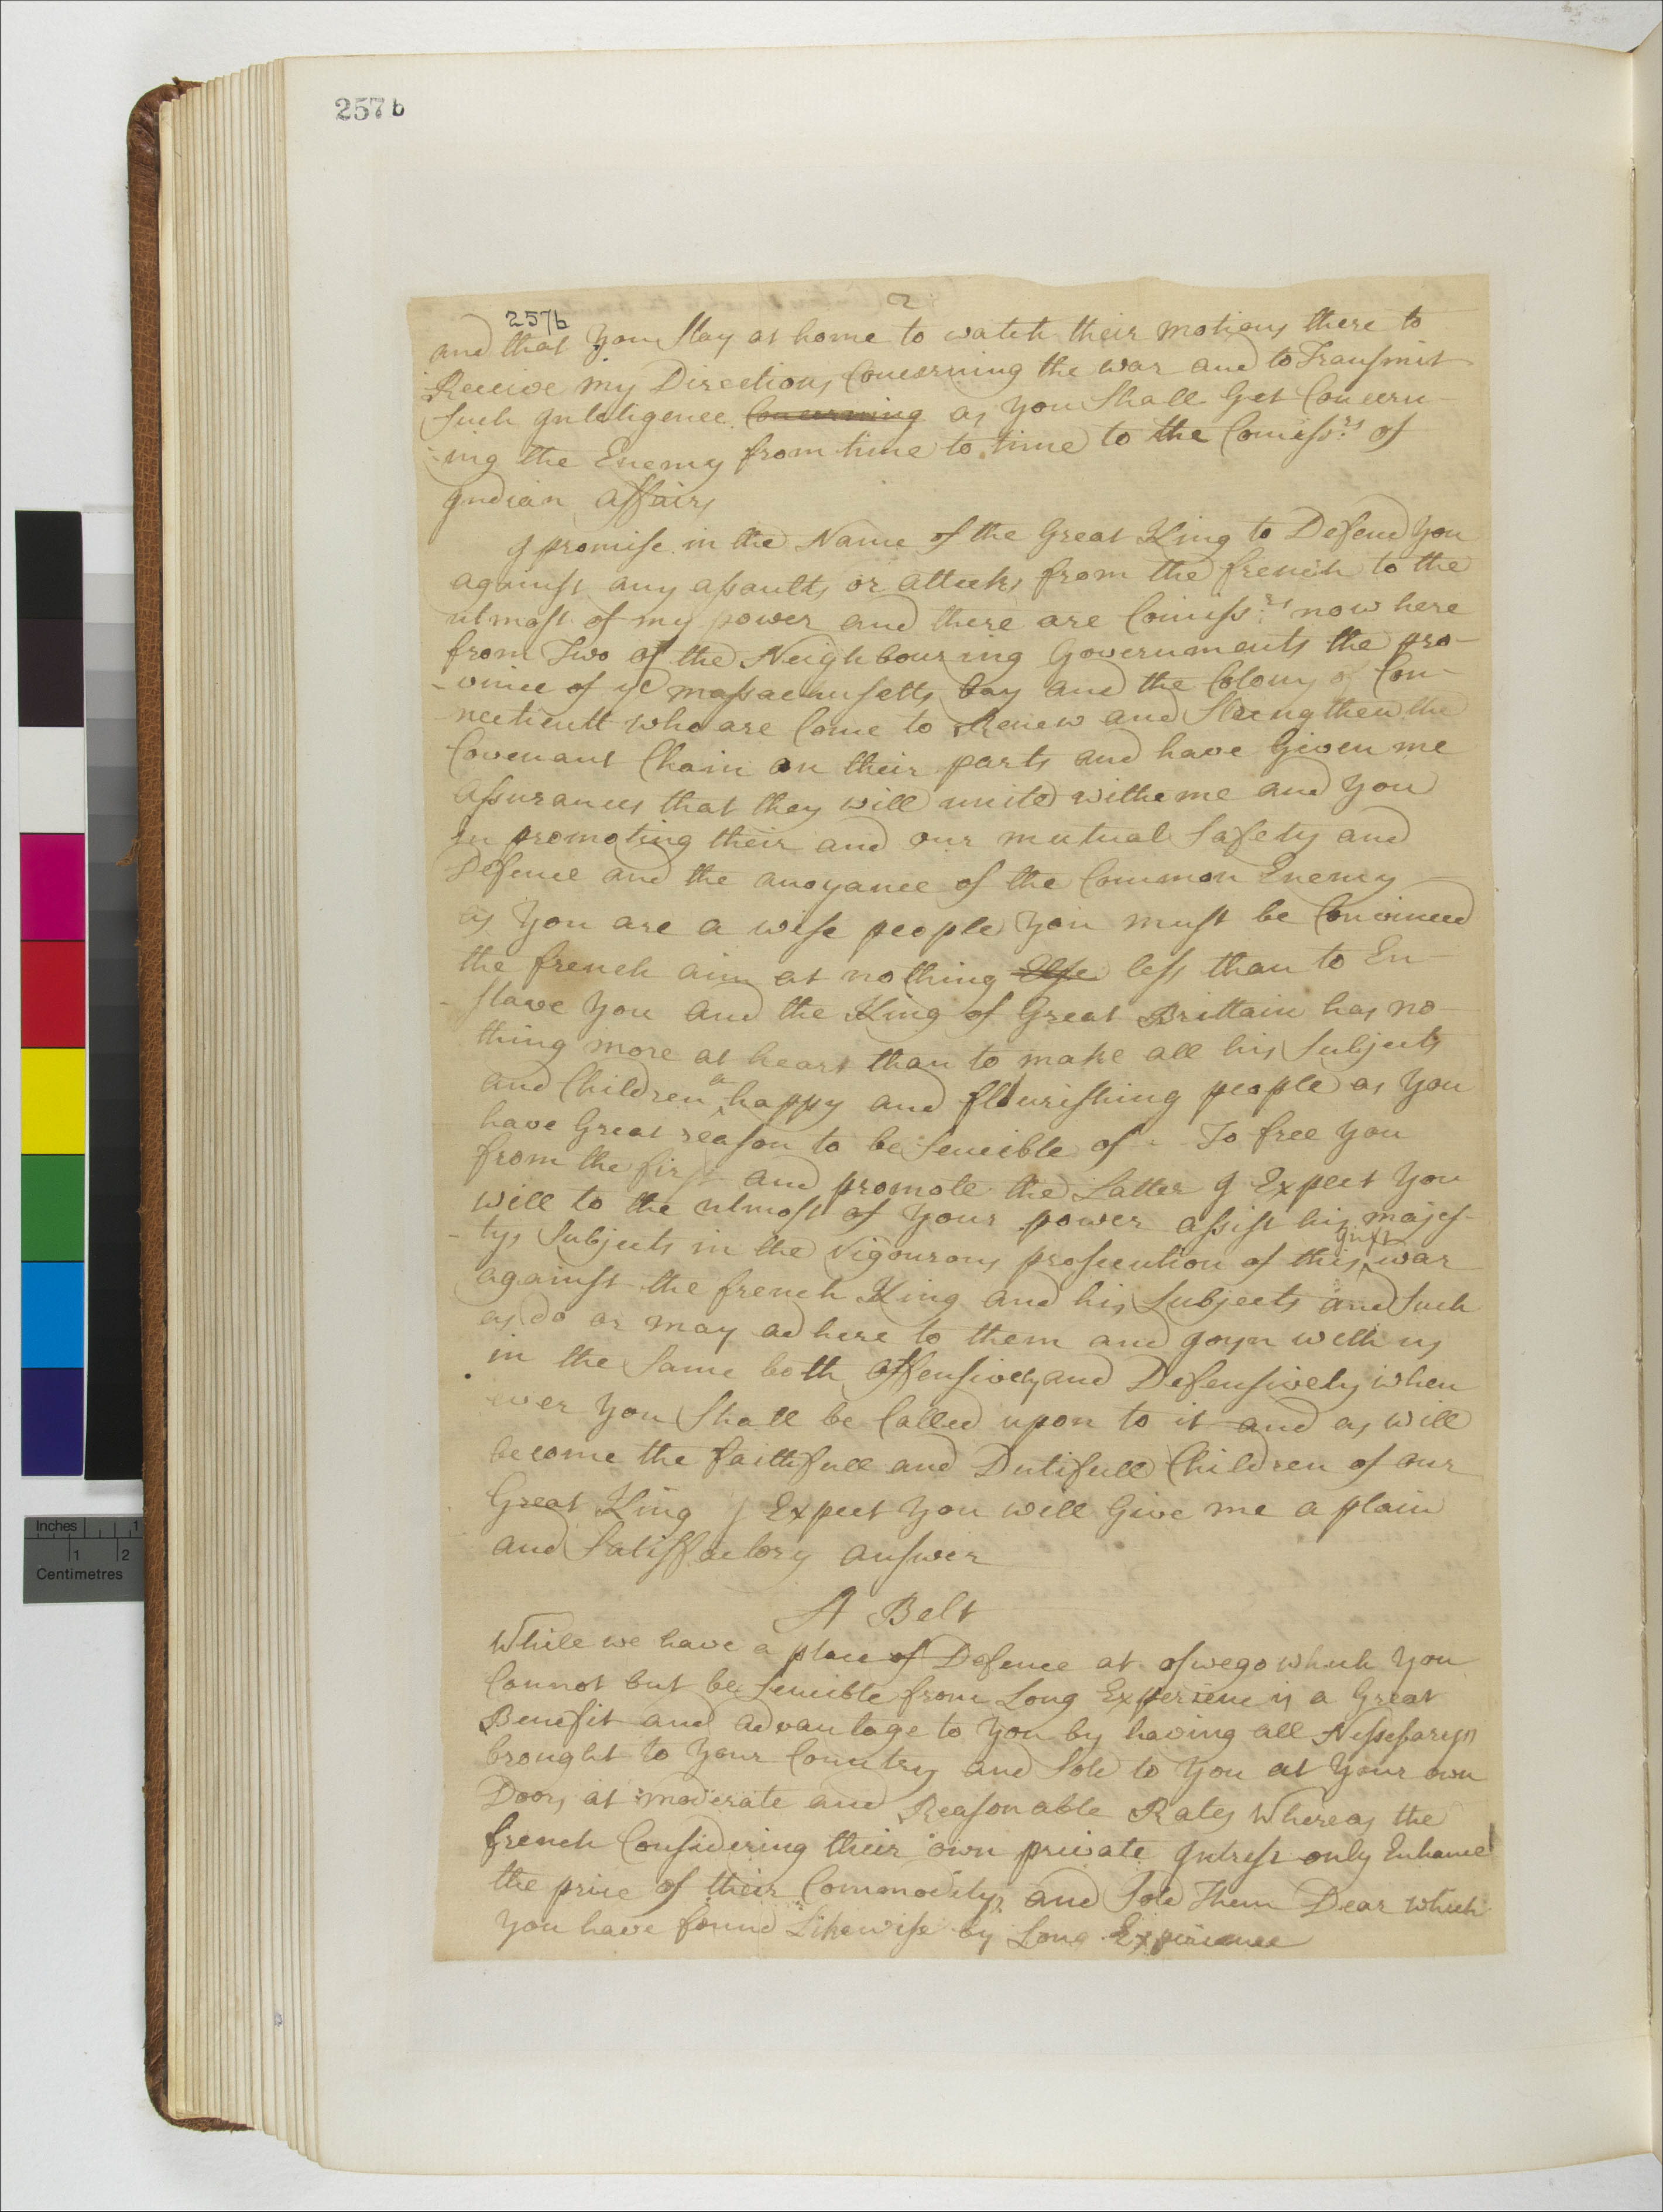 257 b
2
257b
and that you Stay at home to watch their motions there to
Receive my Directions Concerning the war and to Transmit
Such Inteligence Concerning as you Shall Get Concern-
-ing the Enemy from time to time to the Comissrs of
Indian affairs
I promise in the Name of the Great King to Defend you
against any assaults or attecks from the french to the
utmost of my power and there are Comissrs now here
from Two of the Neighbouring Governments the pro-
-vince of ye massachusetts bay and the Colony of Con-
necticutt who are Come to Renew and Strengthen the
Covenant Chain on their parts and have Given me
assurances that they will unite withe me and you
In promoting their and our mutual Safety and
Defence and the anoyance of the Common Enemy
as you are a wise people you must be Convinced
the french aim at nothing Else less than to En-
-slave you and the King of Great Brittain has no-
thing more at heart than to make all his Subjects
and Children a happy and flourishing people as you
have Great reason to be Sencible of - To free you
from the first and promote the Latter I Expect you
will to the utmost of your power assist his majes-
-tys Subjects in the Vigourous prosecution of this Just war
against the french King and his Subjects and Such
as do or may adhere to them and joyn with us
in the Same both offensively and Defensively when
ever you Shall be Called upon to it and as will
become the faithfull and Dutifull Children of our
Great King I Expect you will Give me a plain
and Satisffactory answer
A Belt
While we have a place of Defence at oswego which you
Cannot but be Sencible from Long Experience is a Great
Benefit and advantage to you by having all Nessesarys
brought to your Country and Sold to you at your own
Doors at moderate and Reasonable Rates Whereas the
french Considering their own private Intrest only Enhanced
the price of their Commoditys and Sold Them Dear which
you have found Likewise by Long Experience
Inches 1
1 2
Centimetres